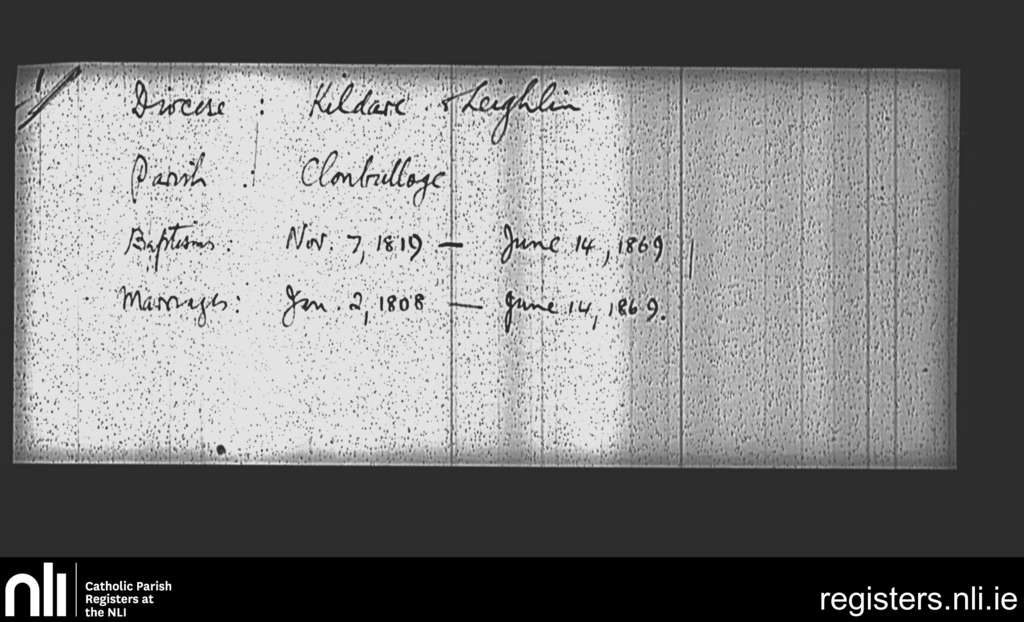 1/
Diocese : Kildare & Leighlin
Parish : Clonbulloge
Baptisms: Nov. 7, 1819 — June 14, 1869
Marriages: Jan. 2, 1808 — June 14, 1869.
nli
Catholic Parish
Registers at
the NLI
registers.nli.ie